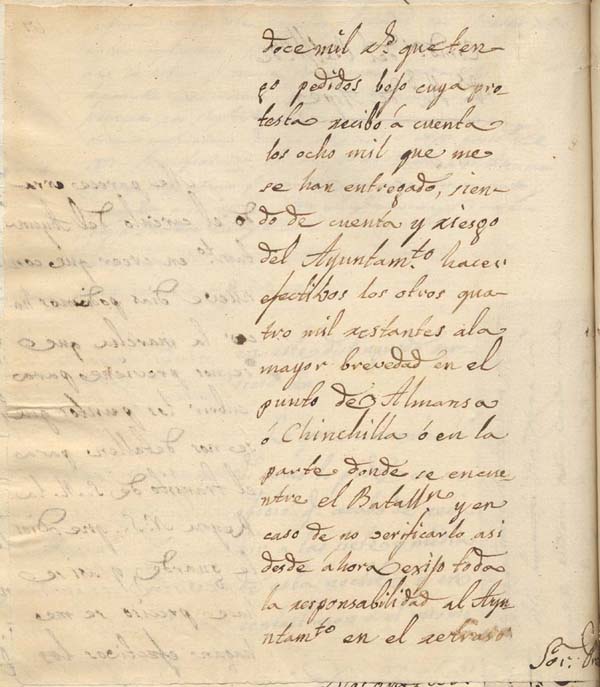 doce mil rs. que ten-
go pedidos bajo cuya pro
testa recibo á cuenta
los ocho mil que me
se han entregado, sien-
do de cuenta y riesgo
del Ayuntam.to hacer
efectibos los otros qua
tro mil restantes ála
mayor brevedad en el
punto de Almansa
ó Chinchilla ó en la
parte donde se encue
ntre el Batalln y en
caso de no verificarlo asi
desde ahora exijo toda
la responsabilidad al Ayu
ntamto en el retraso
Sor.